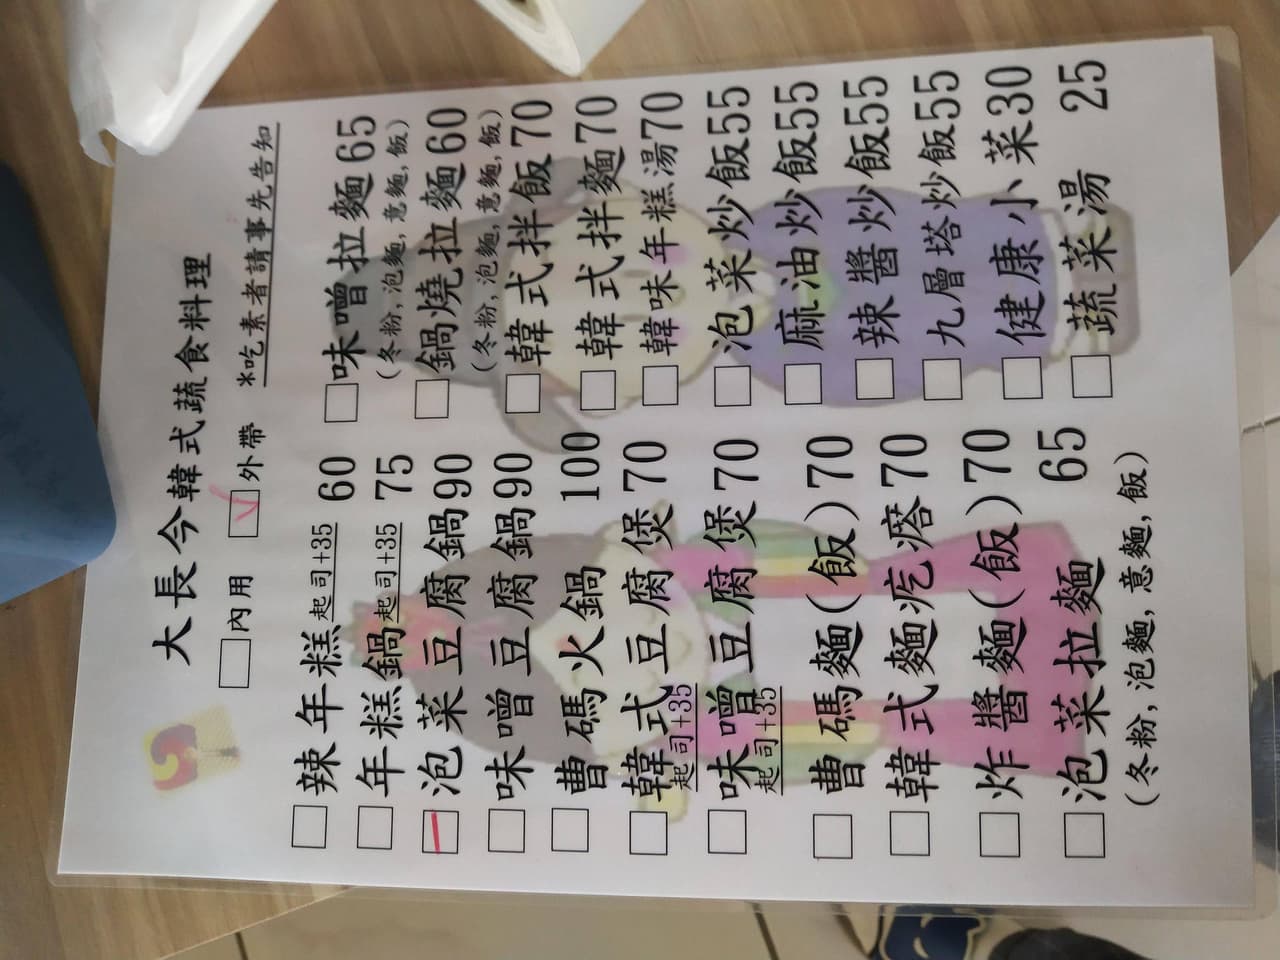 大長今韓式蔬食料理
□內用 □外帶 *吃素者請事先告知
□辣年糕起司+35 60
□年糕鍋起司+35 75
□泡菜豆腐鍋90
□味噌豆腐鍋90
□曹碼火鍋 100
□韓式豆腐煲70
起司+35
□味噌豆腐煲70
起司+35
□曹碼麵(飯)70
□韓式麵疙瘩70
□炸醬麵(飯)70
□泡菜拉麵 65
(冬粉,泡麵,意麵,飯)
□味噌拉麵65
(冬粉,泡麵,意麵,飯)
□鍋燒拉麵60
(冬粉,泡麵,意麵,飯)
□韓式拌飯70
□韓式拌麵70
□韓味年糕湯70
□泡菜炒飯55
□麻油炒飯55
□辣醬炒飯55
□九層塔炒飯55
□健康小菜30
□蔬菜湯 25